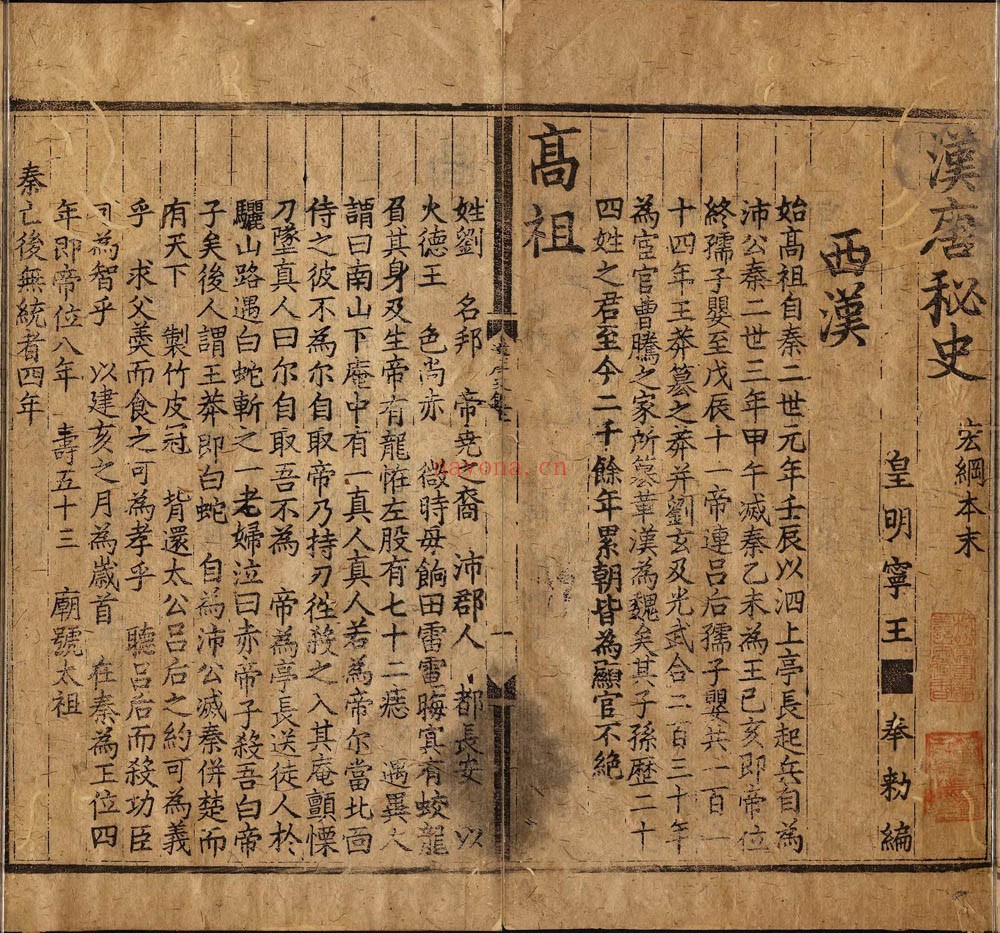 漢唐秘史
宏綱本末
皇明寧王 奉勑編
西漢
始髙祖自秦二世元年壬辰以泗上亭長起兵自為
沛公秦二世三年甲午滅秦乙未為王己亥即帝位
終孺子嬰至戊辰十一帝連吕后孺子嬰共一百一
十四年王莽簒之莽并劉玄及光武合二百三十年
為宦官曹騰之家所簒革漢為魏矣其子孫歴二十
四姓之君至今二千餘年累朝皆為顯官不絶
髙祖
姓劉 名邦 帝堯之裔 沛郡人 都長安 以
火德王 色尚赤 微時母餉田雷電晦冥有蛟龍
負其身及生帝有龍恠左股有七十二痣 遇異人
謂曰南山下庵中有一真人真人若為帝尔當北面
待之彼不為尔自取帝乃持刃徃殺之入其庵顫慄
刀墜真人曰尔自取吾不為 帝為亭長送徒人於
驪山路遇白蛇斬之一老婦泣曰赤帝子殺吾白帝
子矣後人謂王莽即白蛇 自為沛公滅秦併楚而
有天下 製竹皮冠 背還太公吕后之約可為義
乎 求父羮而食之可為孝乎 聽吕后而殺功臣
可為智乎 以建亥之月為嵗首 在秦為王位四
年即帝位八年 壽五十三 廟號太祖
秦亡後無統者四年
一
nayona.cn